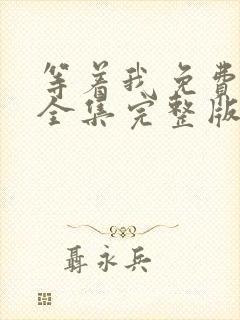 等着我免费
全集完整版
聂永兵